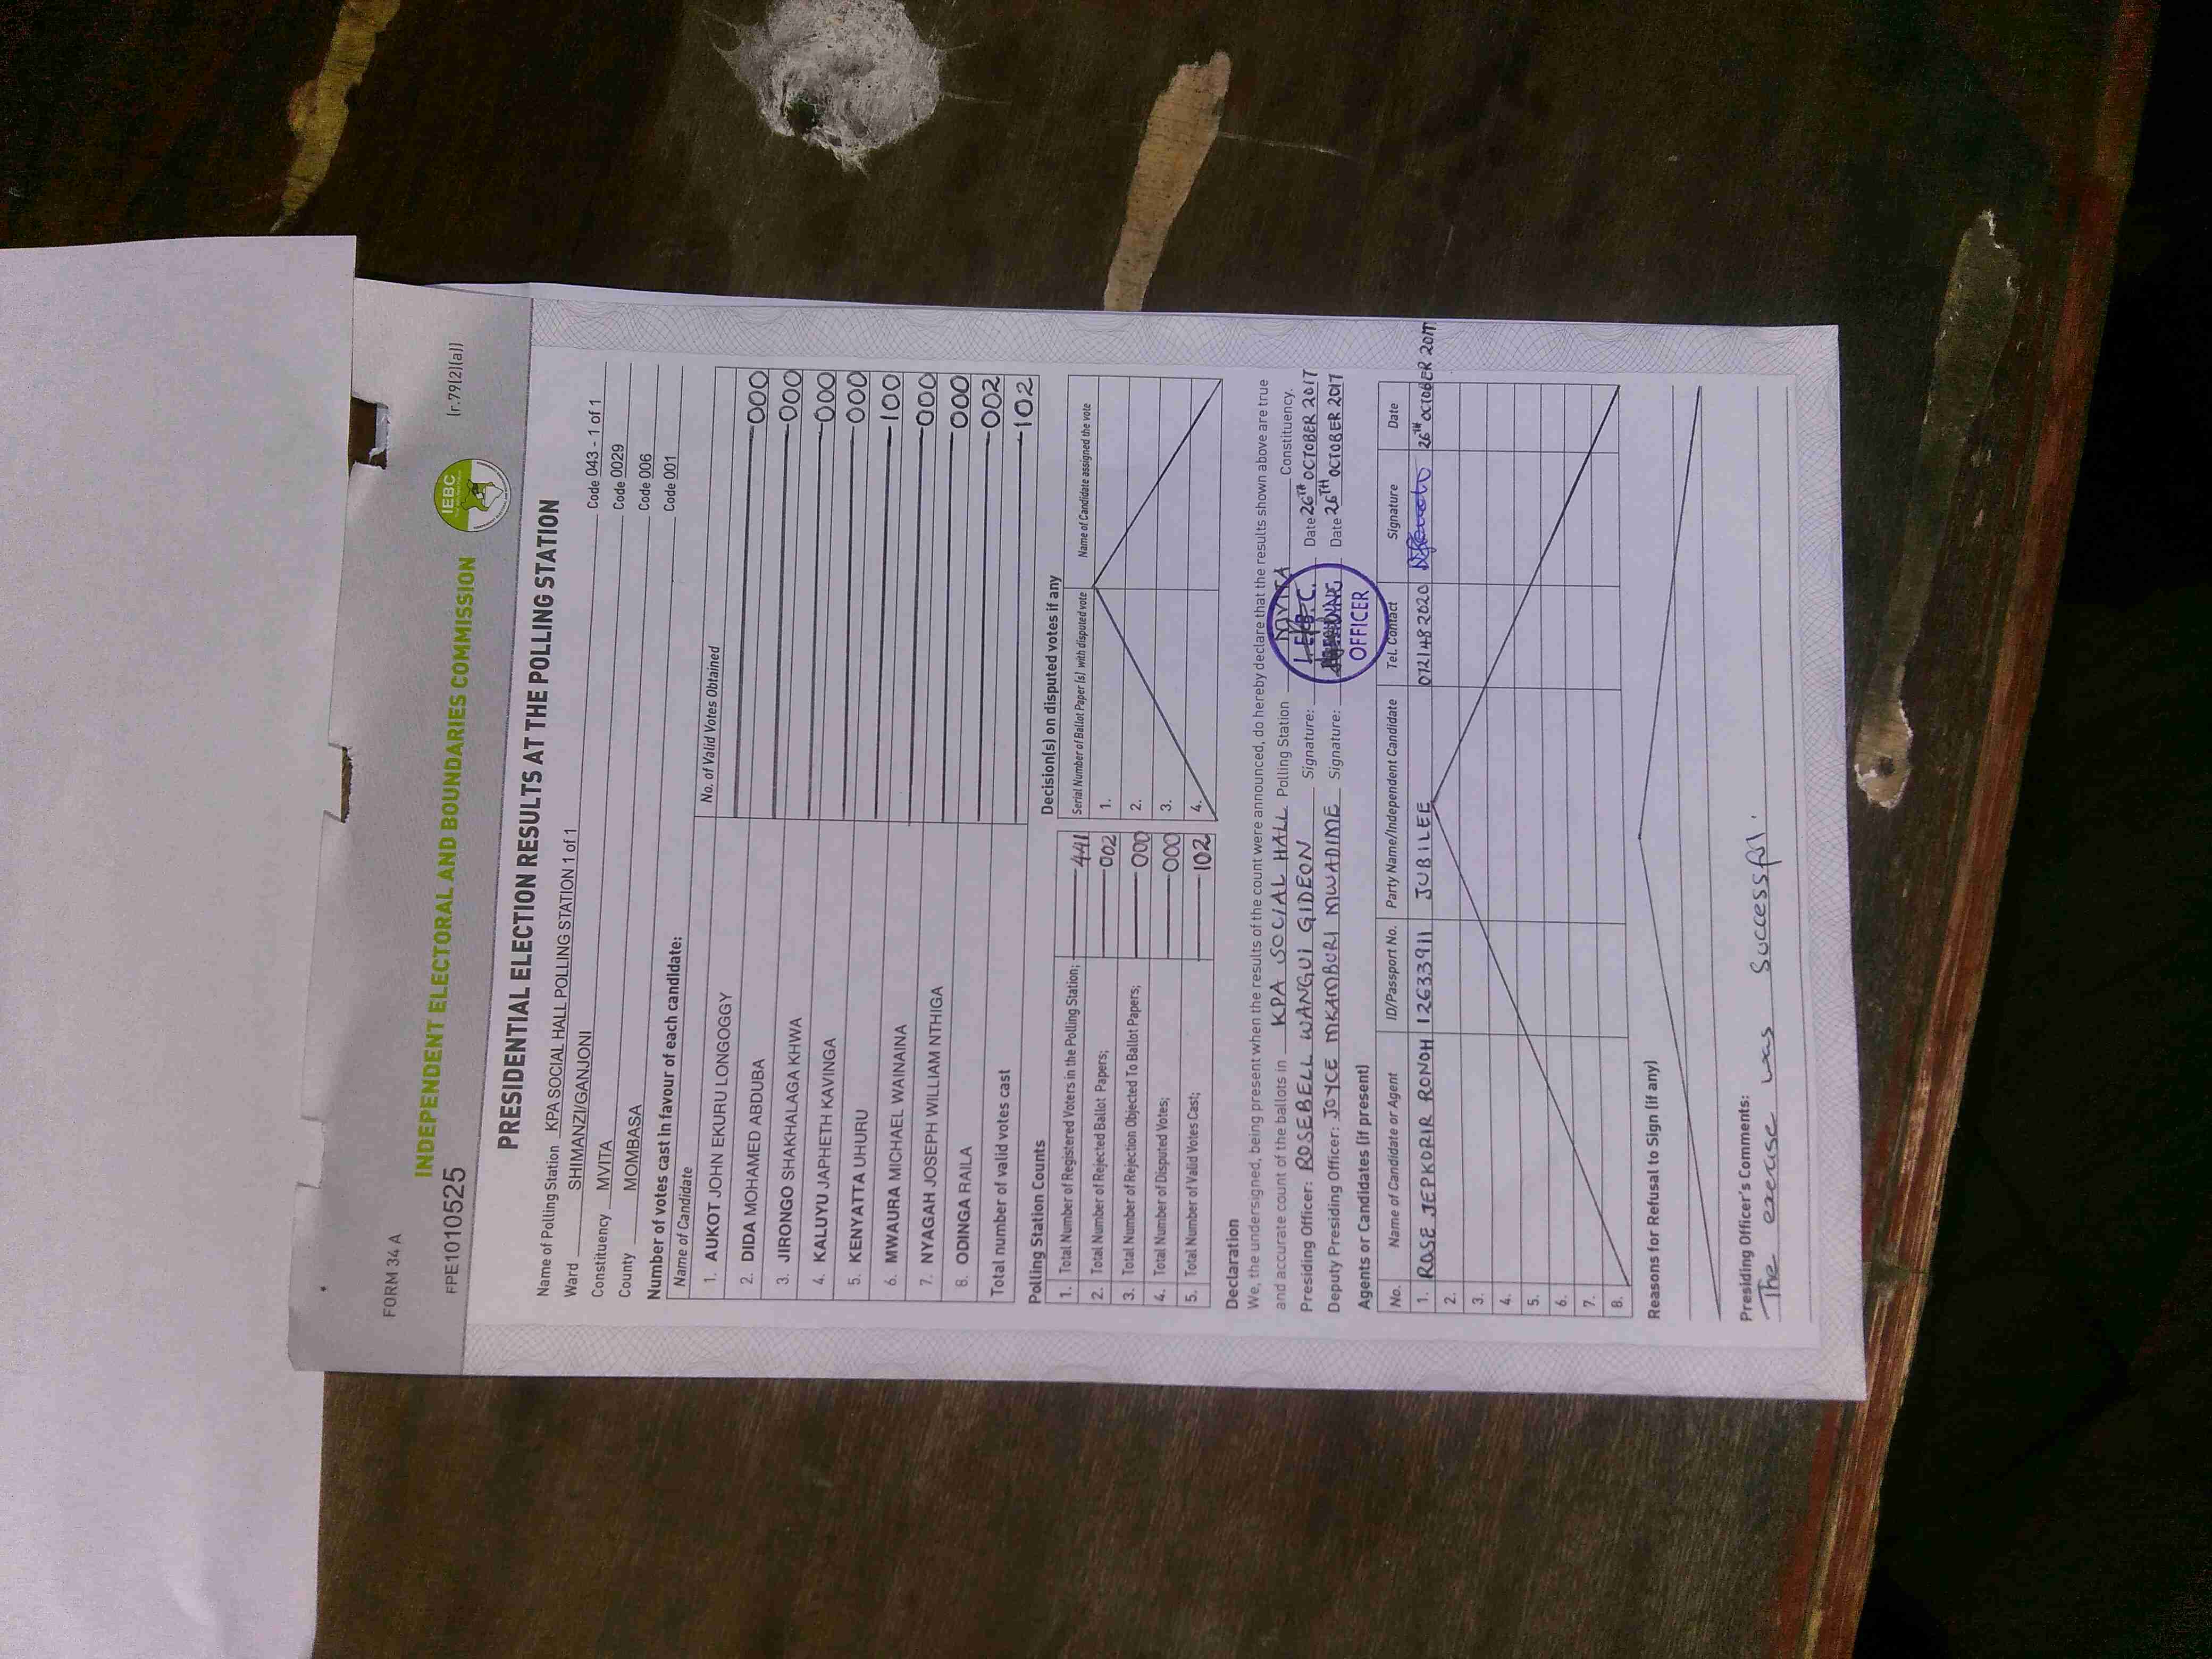 FORM 34 A
INDEPENDENT ELECTORAL AND BOUNDARIES COMMISSION
IEBC
FPE1010525
(r.79(2)(a))
PRESIDENTIAL ELECTION RESULTS AT THE POLLING STATION
Name of Polling Station KPA SOCIAL HALL POLLING STATION 1 of 1 Code 043 - 1 of 1
Ward SHIMANZI/GANJONI Code 0029
Constituency MVITA Code 006
County MOMBASA Code 001
Number of votes cast in favour of each candidate:
Name of Candidate No. of Valid Votes Obtained
1. AUKOT JOHN EKURU LONGOGGY 000
2. DIDA MOHAMED ABDUBA 000
3. JIRONGO SHAKHALAGA KHWA 000
4. KALUYU JAPHETH KAVINGA 000
5. KENYATTA UHURU 100
6. MWAURA MICHAEL WAINAINA 000
7. NYAGAH JOSEPH WILLIAM NTHIGA 000
8. ODINGA RAILA 002
Total number of valid votes cast 102
Polling Station Counts
1. Total Number of Registered Voters in the Polling Station; 441
2. Total Number of Rejected Ballot Papers; 002
3. Total Number of Rejection Objected To Ballot Papers; 000
4. Total Number of Disputed Votes; 000
5. Total Number of Valid Votes Cast; 102
Decision(s) on disputed votes if any
Serial Number of Ballot Paper (s) with disputed vote Name of Candidate assigned the vote
1.
2.
3.
4.
Declaration
We, the undersigned, being present when the results of the count were announced, do hereby declare that the results shown above are true
and accurate count of the ballots in KPA SOCIAL HALL Polling Station MVITA Constituency.
Presiding Officer: ROSEBELL WANGUI GIDEON Signature: Date 26TH OCTOBER 2017
Deputy Presiding Officer: JOYCE MKAMBURI MWADIME Signature: Date 26TH OCTOBER 2017
I.E.B.C.
OFFICER
Agents or Candidates (if present)
No. Name of Candidate or Agent ID/Passport No. Party Name/Independent Candidate Tel. Contact Signature Date
1. ROSE JEPKORIR RONOH 12633911 JUBILEE 0721482020 26TH OCTOBER 2017
2.
3.
4.
5.
6.
7.
8.
Reasons for Refusal to Sign (if any)
Presiding Officer's Comments:
The exercise was successful.